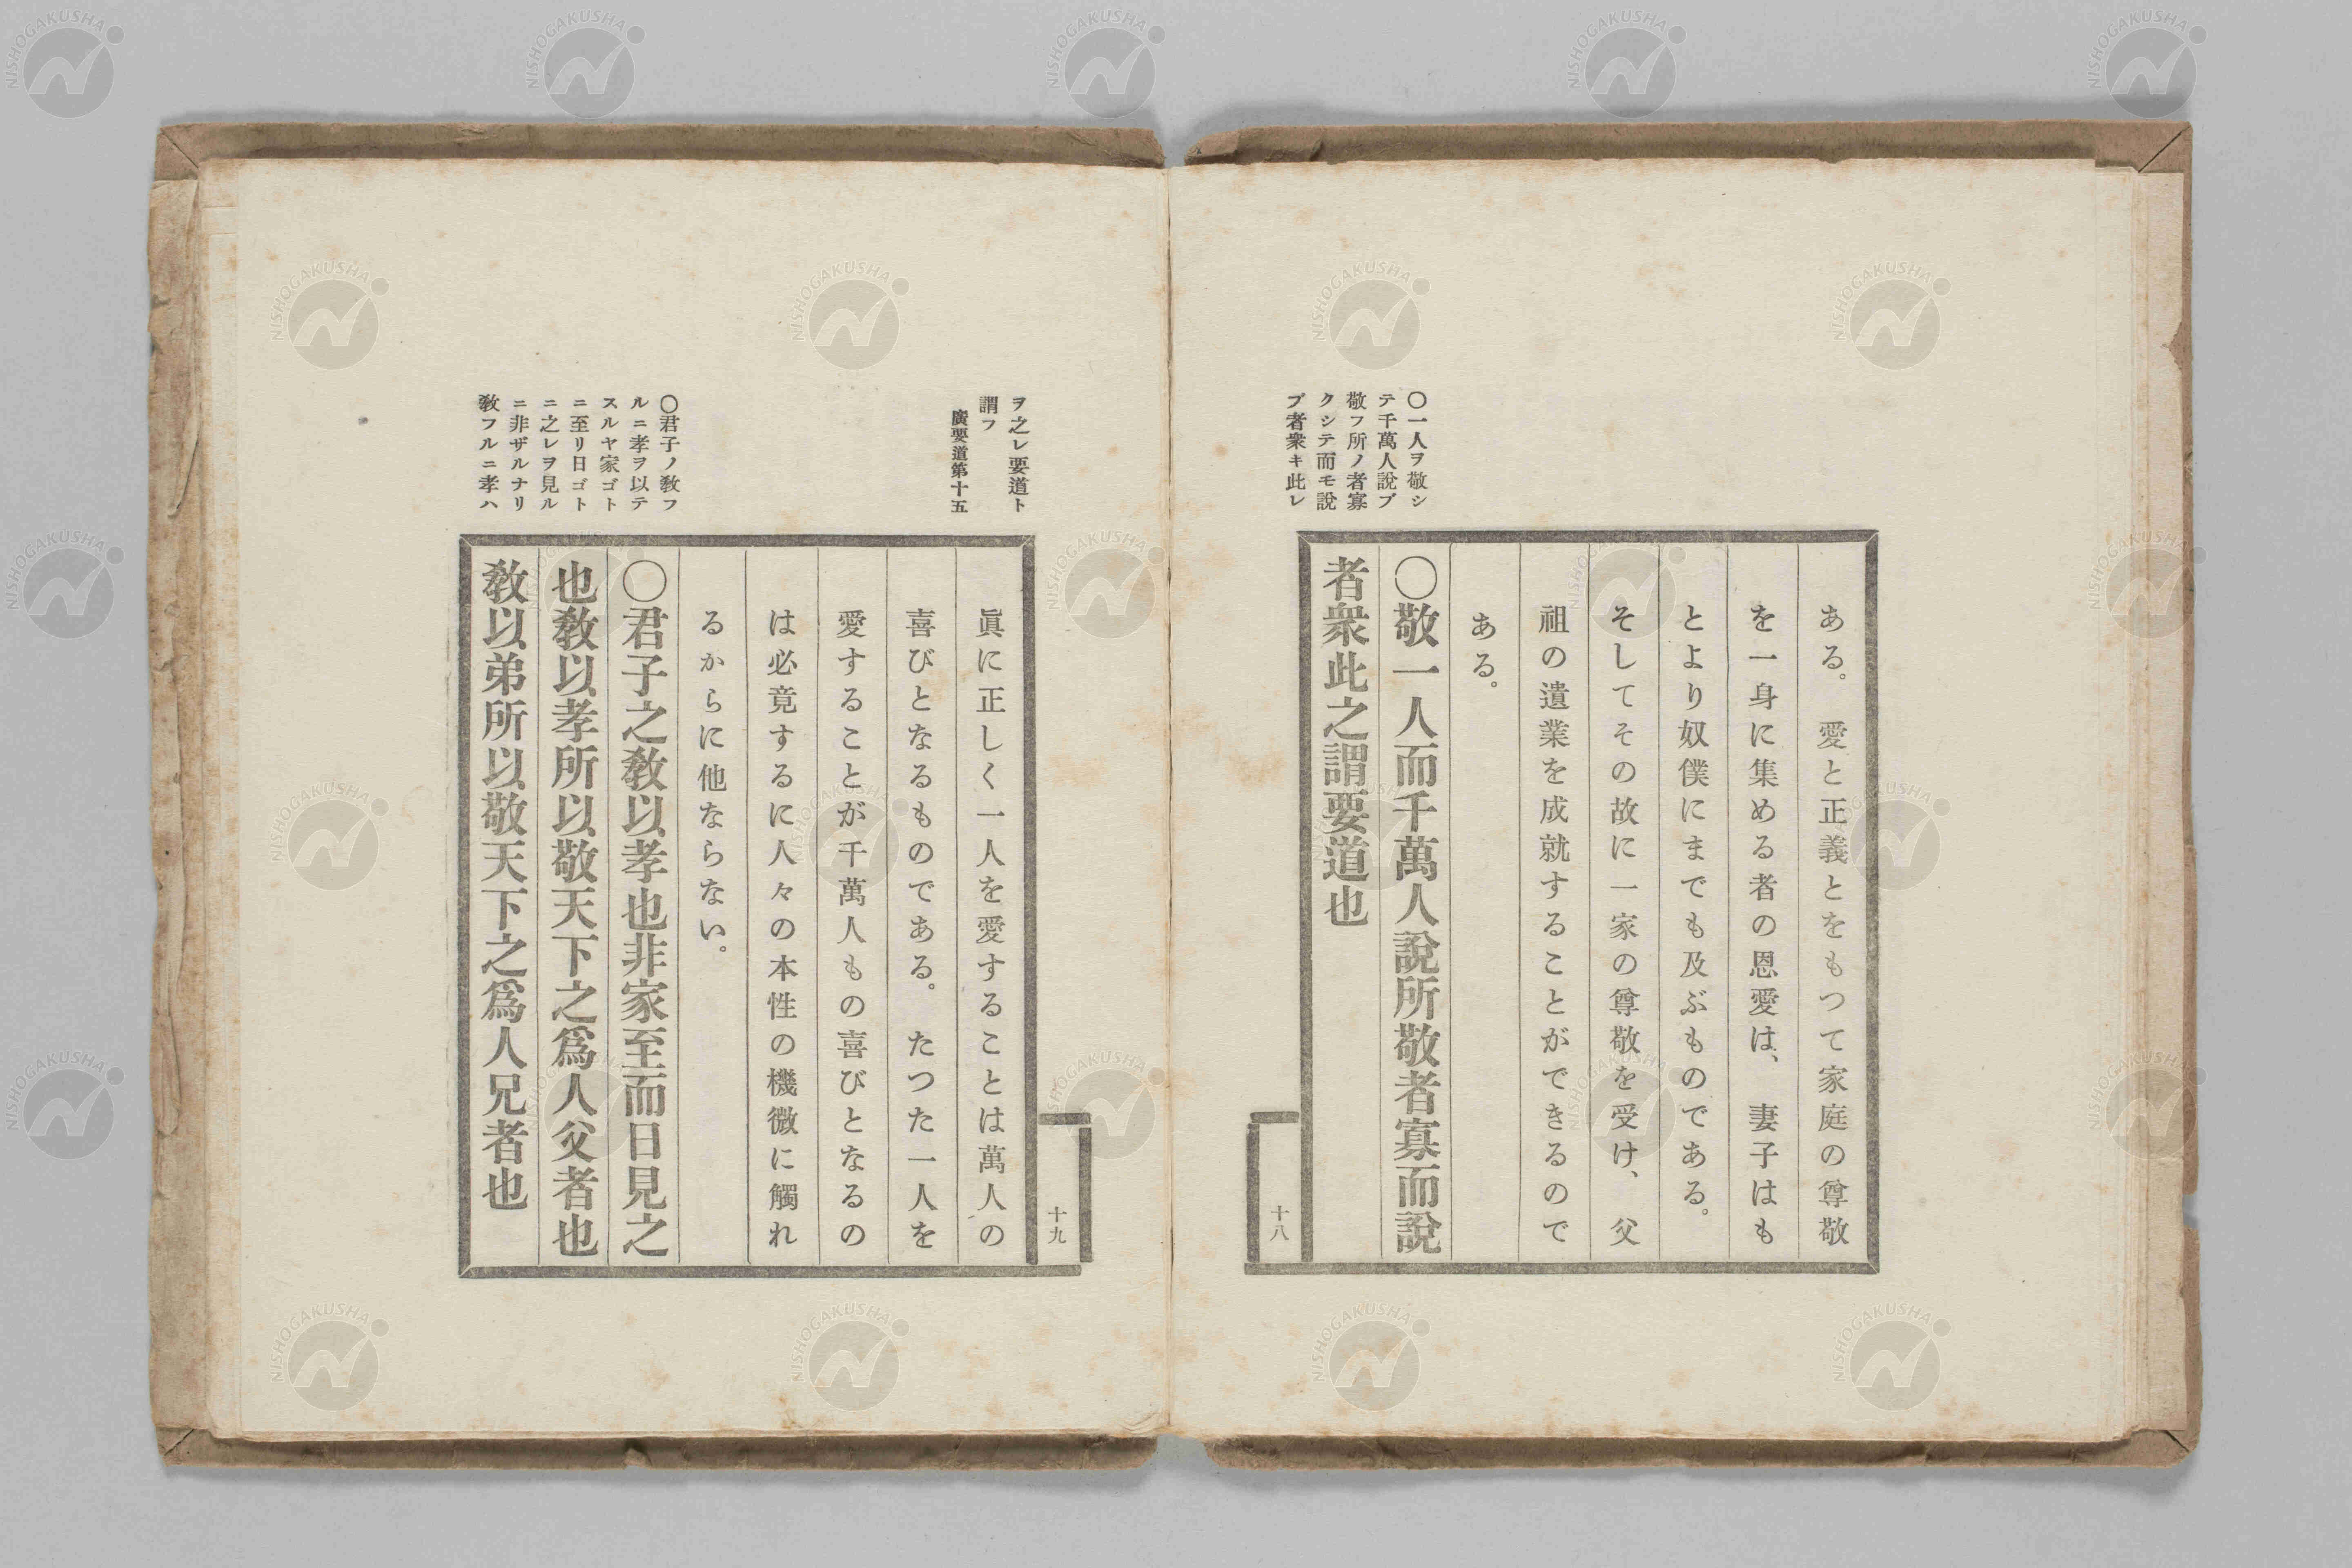 ある。愛と正義とをもつて家庭の尊敬
を一身に集める者の恩愛は、妻子はも
とより奴僕にまでも及ぶものである。
そしてその故に一家の尊敬を受け、父
祖の遺業を成就することができるので
ある。
〇一人ヲ敬シ
テ千萬人說ブ
敬フ所ノ者寡
クシテ而モ說
ブ者衆キ此レ
〇敬一人而千萬人說所敬者寡而說
者衆此之謂要道也
十八
ヲ之レ要道ト
謂フ
廣要道第十五
十九
眞に正しく一人を愛することは萬人の
喜びとなるものである。たつた一人を
愛することが千萬人もの喜びとなるの
は必竟するに人々の本性の機微に觸れ
るからに他ならない。
〇君子ノ敎フ
ルニ孝ヲ以テ
スルヤ家ゴト
ニ至リ日ゴト
ニ之レヲ見ル
ニ非ザルナリ
敎フルニ孝ハ
〇君子之敎以孝也非家至而日見之
也敎以孝所以敬天下之爲人父者也
敎以弟所以敬天下之爲人兄者也
NISHOGAKUSHA